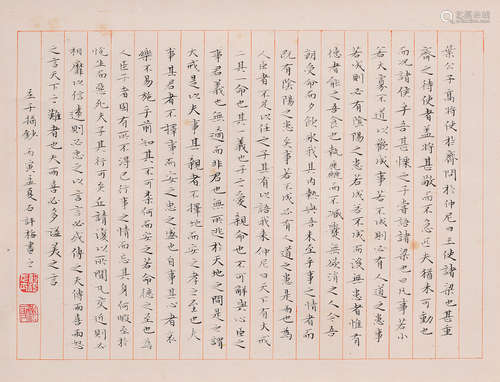 葉公子高將使於齊問於仲尼曰王使諸梁也甚重
齊之待使者蓋將甚敬而不急匹夫猶未可動也
而況諸侯乎吾甚慄之子嘗語諸梁也曰凡事若小
若大寡不道以懽成事若不成則必有人道之患事
若成則必有陰陽之患若成若不成而後無患者惟有
德者能之吾食也執粗而不臧爨無欲清之人今吾
朝受命而夕飲冰我其內熱與吾未至乎事之情而
既有陰陽之患矣事若不成必有人道之患是兩也為
人臣者不足以任之子其有以語我來仲尼曰天下有大戒
二其一命也其一義也子之愛親命也不可解於心臣之
事君義也無適而非君也無所逃於天地之間是之謂
大戒是以夫事其親者不擇地而安之孝之至也夫
事其君者不擇事而安之忠之盛也自事其心者哀
樂不易施乎前知其不可奈何而安之若命德之至也為
人臣子者固有所不得已行事之情而忘其身何暇至於
悅生而惡死夫子其行可矣丘請復以所聞凡交近則必
相靡以信遠則必忠之以言言必或傳之夫傳兩喜兩怒
之言天下之難者也夫兩喜必多溢美之言
莊子摘鈔 丙寅孟夏石評梅書